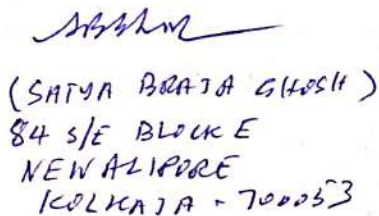 (SATYA BRAJA GHOSH)
84 S/E BLOCK E
NEW ALIPORE
KOLKATA - 700053